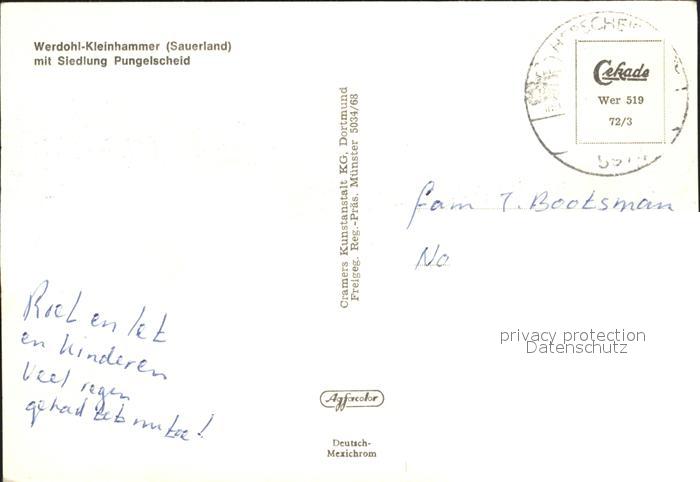 Werdohl-Kleinhammer (Sauerland)
mit Siedlung Pungelscheid
Cekade
Wer 519
72/3
Cramers Kunstanstalt KG, Dortmund
Freigeg. Reg.-Präs. Münster 5034/68
fam J. Bootsman
No
privacy protection
Datenschutz
Roel en
en kinderen
Veel regen
gehad
Agfacolor
Deutsch-
Mexichrom